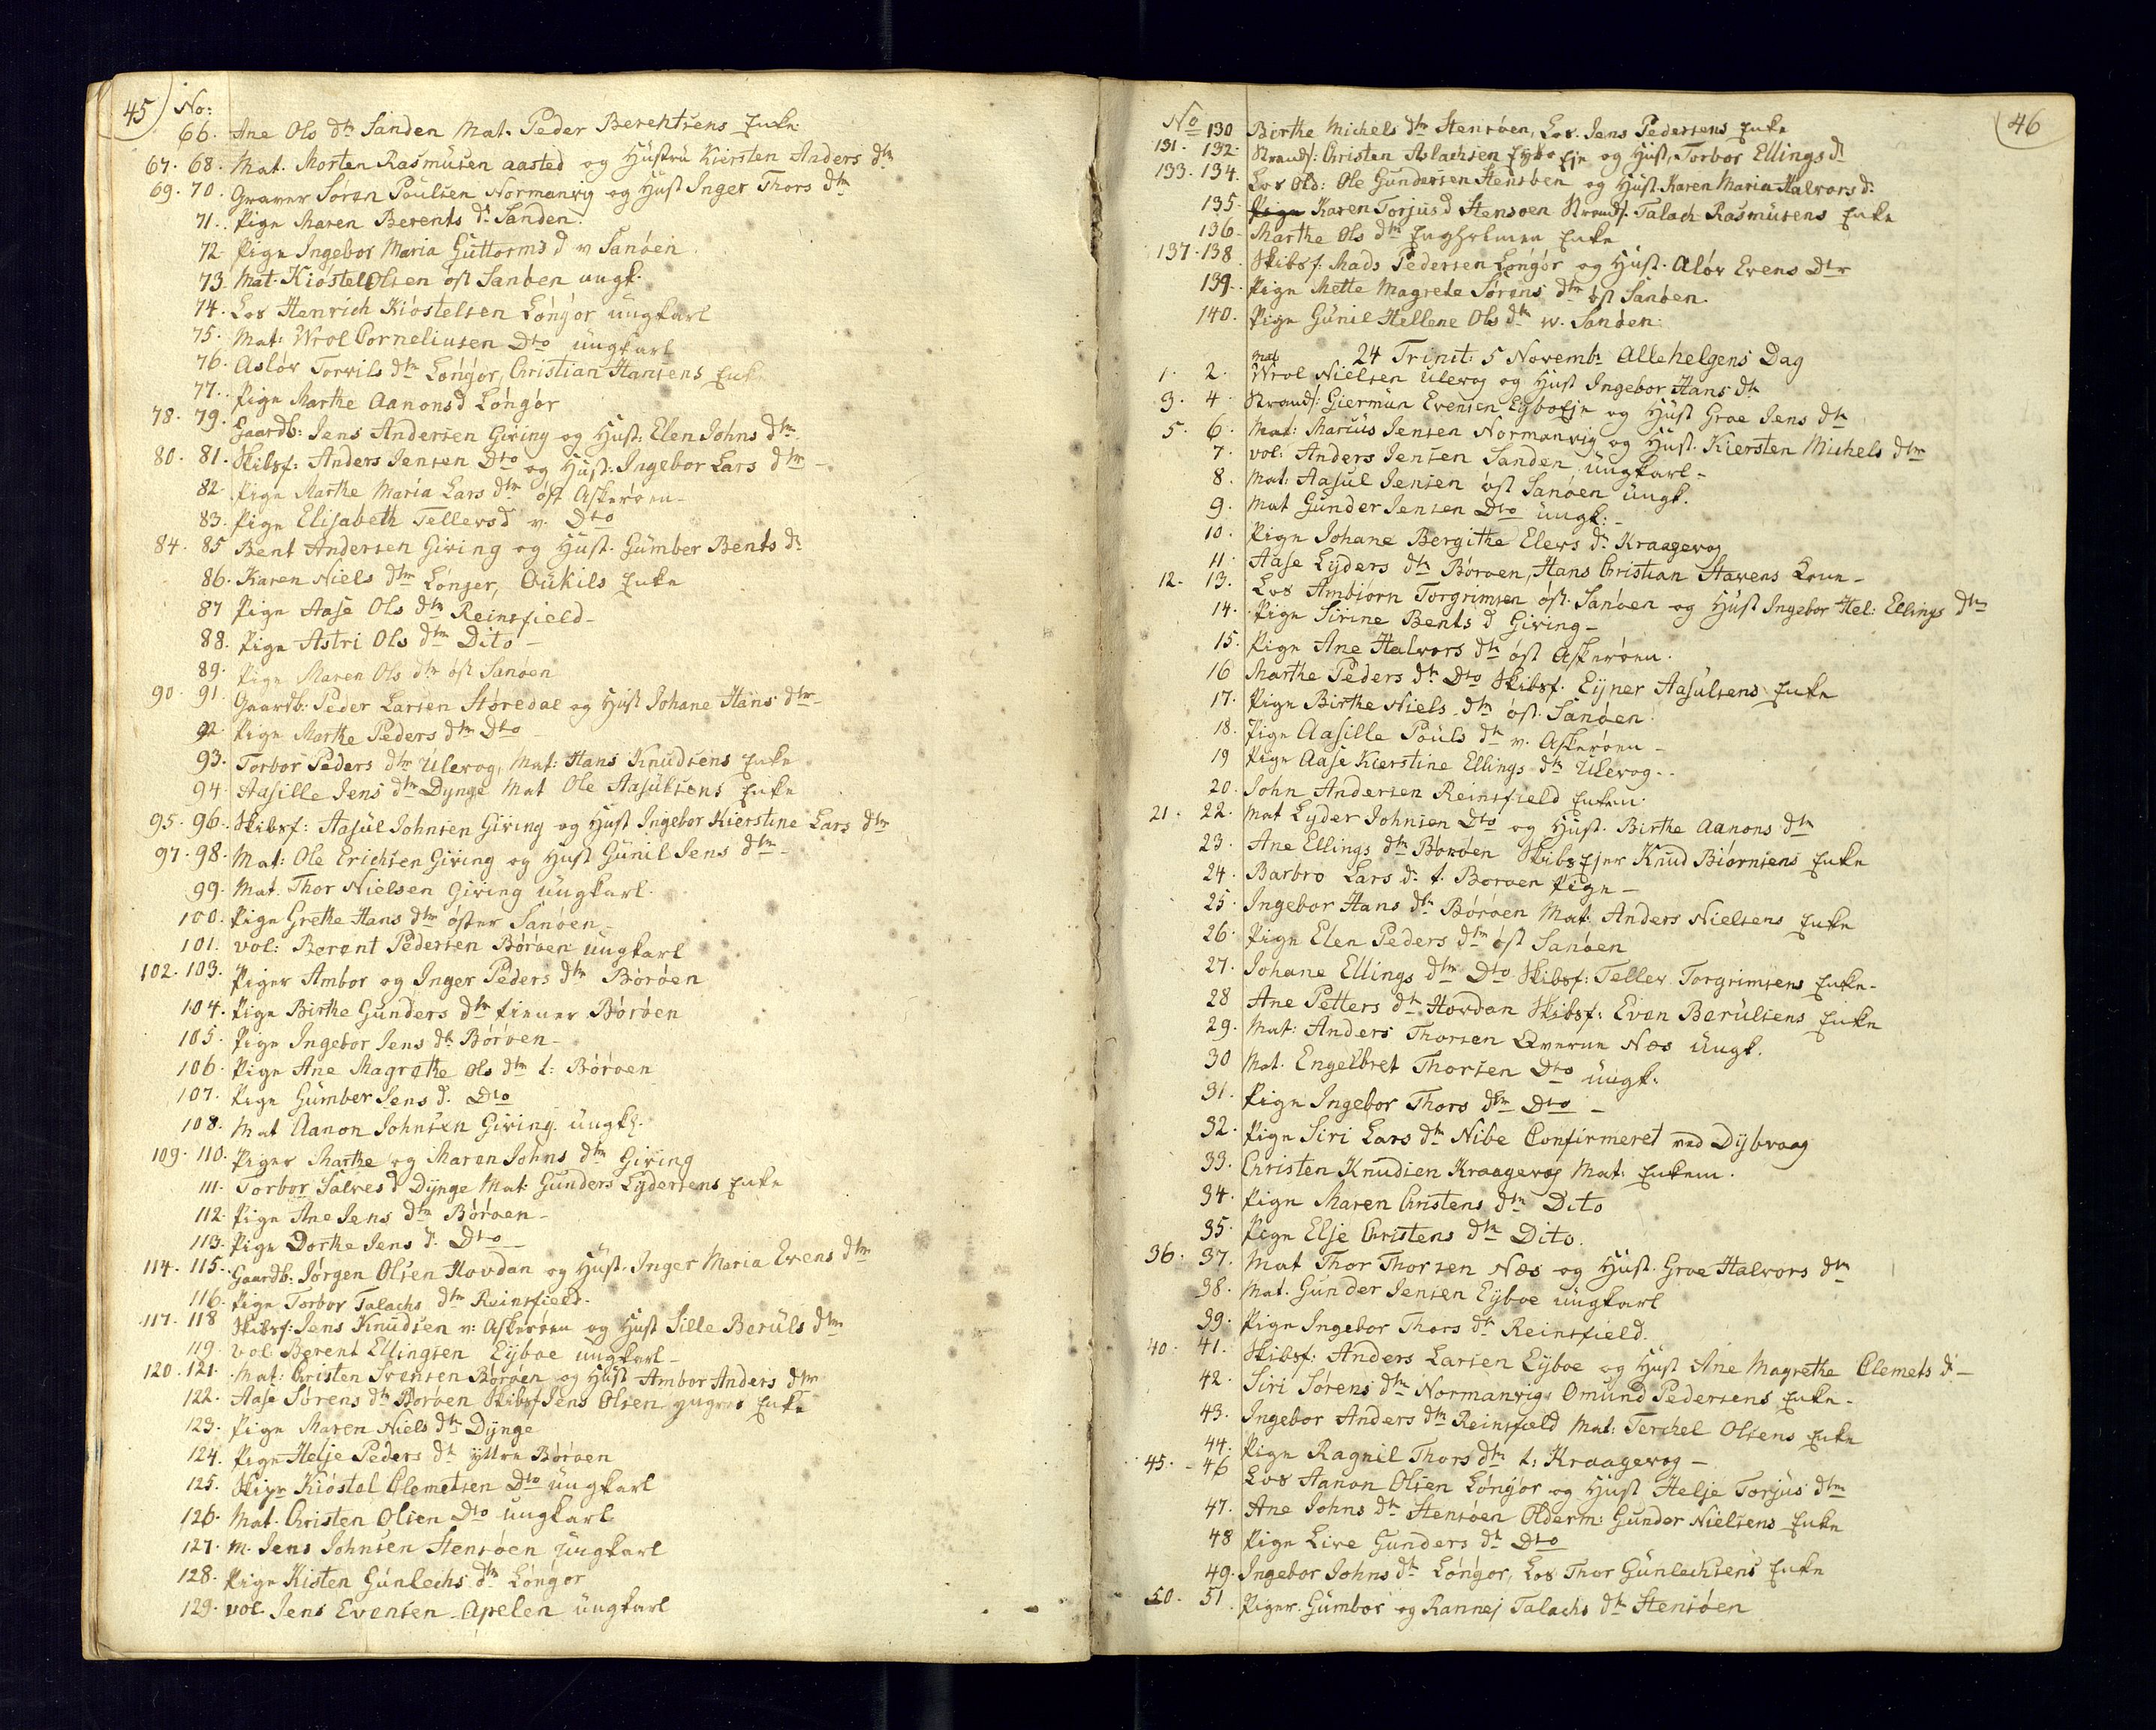 45 No:
66. Ane Ols dtr Sanden Mat. Peder Berehtsens Enke
67. 68. Mat. Morten Rasmusen aasted og Hustru Kiersten Anders dtr
69. 70. Graver Søren Poulsen Normanvig og Hust Inger Thors dtr
71. Pige Maren Berents d. Sanden.
72. Pige Ingebor Maria Guttorms d v Sanøen
73. Mat. Kiøstel Olsen øst Sanøen ungk.
74. Los Henrich Kiøstelsen Løngør ungkarl
75. Mat: Wrol Corneliusen Dto ungkarl
76. Asløv Torvils dtr Løngør, Christian Hansens Enke
77. Pige Marthe Aanons d Løngør
78. 79. Gaardb: Jens Andersen Giving og Hust: Elen Johns dtr
80. 81. Skibsf: Anders Jensen Dto og Hust: Ingebor Lars dtr -
82. Pige Marthe Maria Lars dtr øst Askerøen -
83. Pige Elisabeth Tellevs d v. Dto
84. 85 Bent Andersen Giving og Hust. Gumber Bents d.
86. Karen Niels dtr Lønger, Oukils Enke
87 Pige Aase Ols dtr Reinsfield -
88. Pige Astri Ols dtr Dito -
89. Pige Maren Ols dtr øst Sanøen
90. 91. Gaardb: Peder Larsen Støredal og Hust Johane Hans dtr -
92. Pige Marthe Peders dtr Dto -
93. Torbor Peders dtr Ulevog, Mat: Hans Knudsens Enke
94. Aasille Jens dtr Dynge Mat Ole Aasulsens Enke
95. 96. Skibsf: Aasul Johnsen Giving og Hust Ingebor Kierstine Lars dtr
97. 98. Mat: Ole Erichsen Giving og Hust Gunil Jens dtr -
99. Mat. Thor Nielsen Giving ungkarl.
100. Pige Grethe Hans dtr øster Sanøen -
101. vol: Berent Pedersen Børøen ungkarl
102. 103. Piger Ambor og Inger Peders dtr Børøen
104. Pige Birthe Gunders dtr Børøen
105. Pige Ingebor Jens dtr Børøen -
106. Pige Ane Magrethe Ols dtr t: Børøen
107. Pige Gumber Jens d. Dto
108. Mat Aanon Johnsen Giving. ungk.
109. 110. Piger Marthe og Maren Johns dtr Giving
111. Torbor Salves d Dynge Mat: Gunders Lydersens Enke
112. Pige Ane Jens dtr Børøen -
113. Pige Dorthe Jens d. Dto -
114. 115. Gaardb: Jørgen Olsen Hovdan og Hust. Inger Maria Evens dtr
116. Pige Torbor Talachs dtr Reinsfield.
117. 118 Skibsf: Jens Knudsen v: Askerøen og Hust Sille Beruls dtr
119. vol: Berent Ellingsen Eyboe ungkarl -
120. 121. Mat: Christen Svensen Børøen og Hust Ambor Anders dtr
122. Aase Sørens dtr Børøen Skibsf Jens Olsen yngres Enke
123. Pige Maren Niels dtr Dynge
124. Pige Helje Peders dtr yttre Børøen
125. Kiøstol Clemetsen Dto ungkarl
126. Mat. Christen Olsen Dto ungkarl
127. M. Jens Johnsen Stensøen ungkarl
128. Pige Kisten Gunlechs dtr Løngør
129. vol. Jens Evensen Apelen ungkarl
46
No 130 Birthe Michels dtr Stensøen, Los. Jens Pedersens Enke
131. 132. Strands: Christen Aslachsen Eyboe Eje og Hust, Torbor Ellings d.
133. 134. Los Old: Ole Gundersen Stensøen og Hust. Karen Maria Halvors d:
135. Pige Karen Torjus d Stensøen Strands. Talach Rasmusens Enke
136. Marthe Ols dtr Engholmen Enke
137. 138. Skibsf. Mads Pedersen Løngør og Hust. Aløv Evens Dtr
139. Pige Mette Magrete Sørens dtr øst Sanøen.
140. Pige Gunil Hellene Ols dtr w. Sanøen.
24 Trinit: 5 Novembr Allehelgens Dag
1. 2. Mat Wrol Nielsen Ulevog og Hust Ingebor Hans dtr
3. 4. Strands: Giermun Evensen Eyboe Eje og Hust Groe Jens dtr
5. 6. Mat: Marius Jensen Normanvig og Hust. Kiersten Michels dtr
7. vol: Anders Jensen Sanden ungkarl -
8. Mat: Aasul Jensen øst Sanøen ungk.
9. Mat Gunder Jensen Dto ungk: -
10. Pige Johane Bergithe Elevs d. Kraagevog
11. Aase Lyders dtr Børøen, Hans Christian Havens Kone -
12. 13. Los Ambiørn Torgrimsen øst. Sanøen og Hust Ingebor Hel: Ellings dtr
14. Pige Sirine Bents d Giving -
15. Pige Ane Halvors dtr øst Askerøen.
16 Marthe Peders dtr Dto Skibsf. Eyner Aasulsens Enke
17. Pige Birthe Niels dtr øst. Sanøen
18. Pige Aasille Pouls dtr v. Askerøen -
19 Pige Aase Kierstine Ellings dtr Ulevog -.
20. John Andersen Reinsfield Enkem:
21. 22. Mat Lyder Johnsen Dto og Hust. Birthe Aanons dtr
23. Ane Ellings dtr Børøen Skibs Ejer Knud Biørnsens Enke
24. Barbro Lars d. t. Børøen Pige -
25. Ingebor Hans dtr Børøen Mat. Anders Nielsens Enke
26. Pige Elen Peders dtr øst Sanøen
27. Johane Ellings dtr Dto Skibsf: Tellev Torgrimsens Enke -
28 Ane Petters dtr Hovdan Skibsf: Even Berulsens Enke
29. Mat: Anders Thorsen Qverne Næs ungk.
30 Mat. Engelbret Thorsen Dto ungk:
31. Pige Ingebor Thors dtr Dto -
32. Pige Siri Lars dtr Nibe Confirmeret ved Dybvaag
33. Christen Knudsen Kraagevog Mat: Enkem.
34. Pige Maren Christens dtr Dito
35. Pige Elje Christens dtr Dito.
36. 37. Mat Thor Thorsen Næs og Hust. Groe Halvors dtr
38. Mat. Gunder Jensen Eyboe ungkarl
39. Pige Ingebor Thors dtr Reinsfield.
40. 41. Skibsf: Anders Larsen Eyboe og Hust Ane Magrethe Clemets d. -
42. Siri Sørens dtr Normanvig. Omund Pedersens Enke -
43. Ingebor Anders dtr Reinsfield Mat: Terchel Olsens Enke
44. Pige Ragnil Thors dtr t: Kraagevog -
45. 46 Los Aanon Olsen Løngør og Hust Helje Torjus dtr
47. Ane Johns dtr Stensøen Olderm: Gunder Nielsens Enke
48 Pige Live Gunders dtr Dto
49. Ingebor Johns dtr Løngør, Los Thor Gunlechsens Enke
50. 51. Piger. Gumbor og Rannej Talachs dtr Stensøen